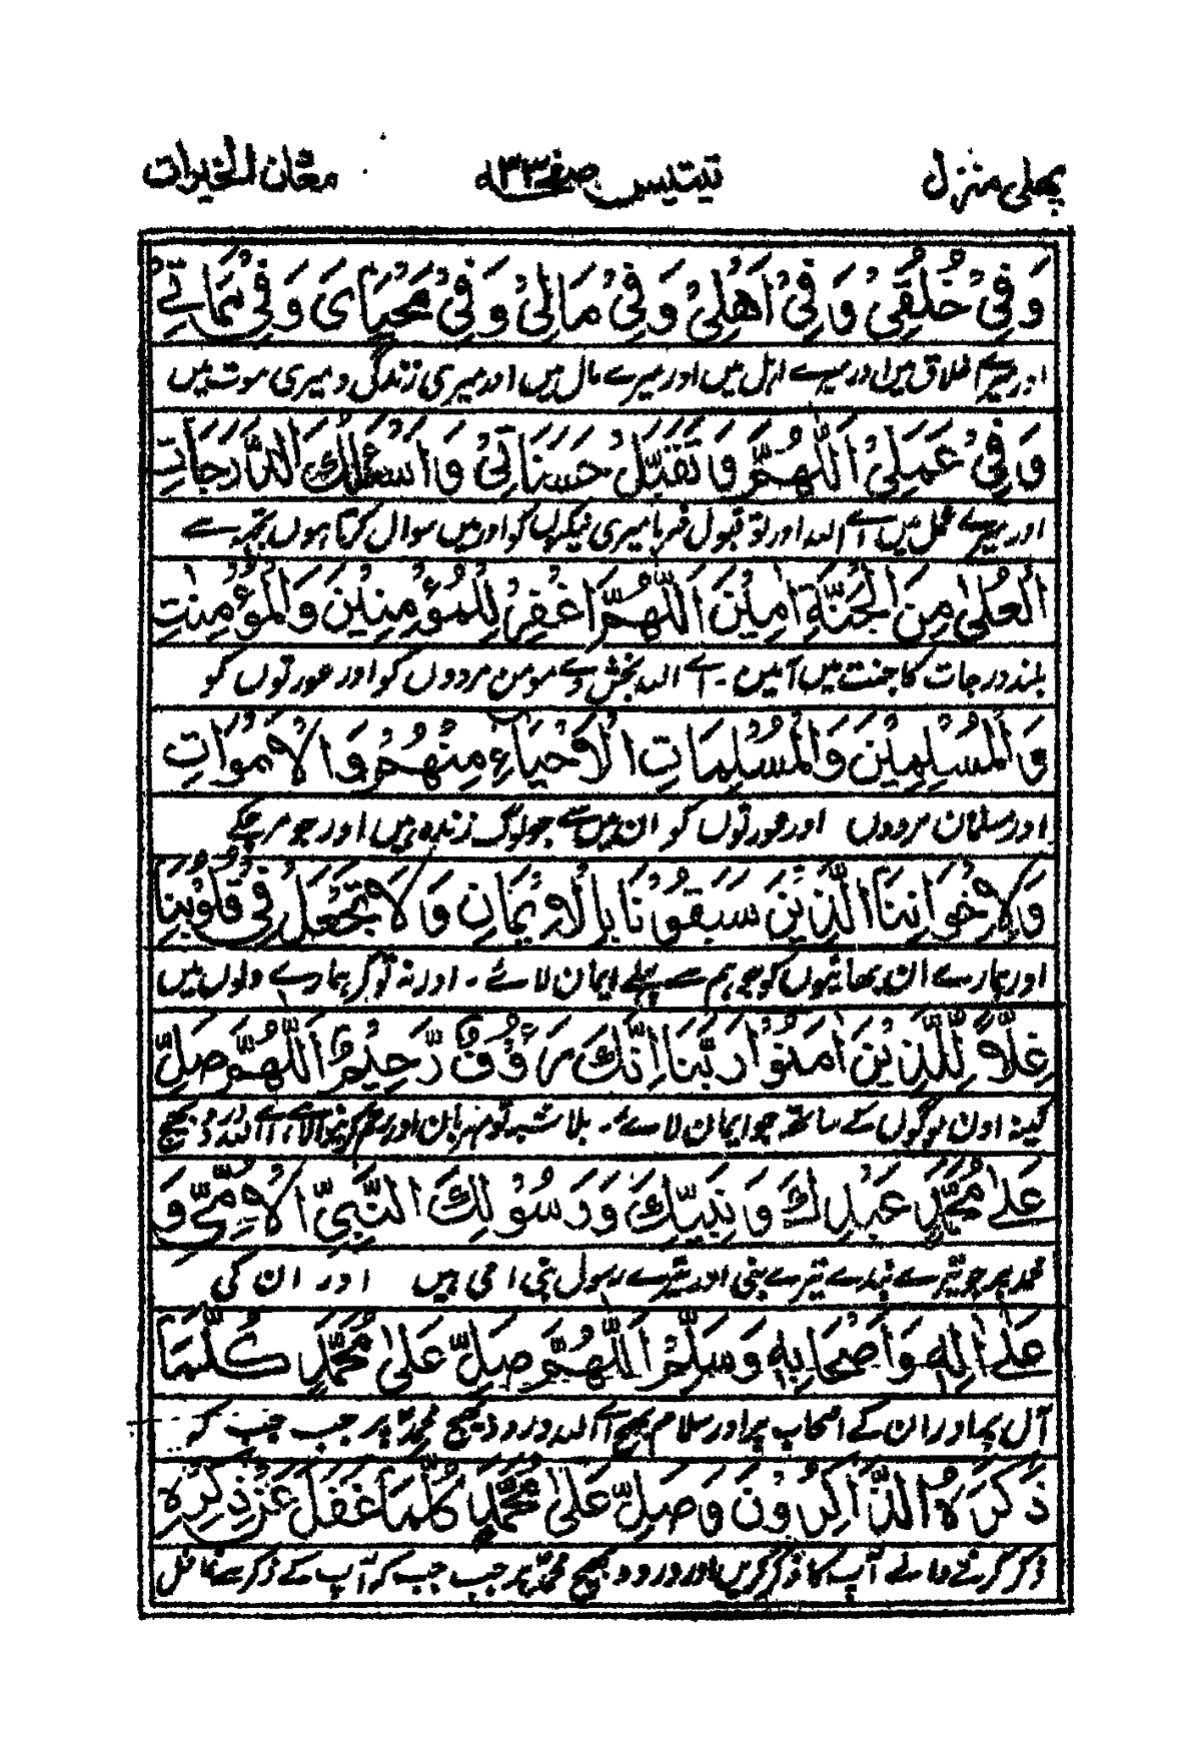 پہلی منزل تیتیس صفحہ ۳۳ معان الخیرات
وَفِيْ خُلُقِيْ وَفِيْ اَهْلِيْ وَفِيْ مَالِيْ وَفِيْ مَحْيَايَ وَفِيْ مَمَاتِيْ
اور میرے اخلاق میں اور میرے اہل میں اور میرے مال میں اور میری زندگی و میری موت میں
وَفِيْ عَمَلِيْ اَللّٰهُمَّ وَتَقَبَّلْ حَسَنَاتِيْ وَاَسْئَلُكَ الدَّرَجَاتِ
اور میرے عمل میں اے اللہ اور تو قبول فرما میری نیکیوں کو اور میں سوال کرتا ہوں تجھ سے
الْعُلٰى مِنَ الْجَنَّةِ اٰمِيْنَ اَللّٰهُمَّ اغْفِرْ لِلْمُؤْمِنِيْنَ وَالْمُؤْمِنٰتِ
بلند درجات کا جنت میں آمین۔ اے اللہ بخش دے مومن مردوں کو اور عورتوں کو
وَالْمُسْلِمِيْنَ وَالْمُسْلِمَاتِ الْاَحْيَاءِ مِنْهُمْ وَالْاَمْوَاتِ
اور مسلمان مردوں اور عورتوں کو ان میں سے جو لوگ زندہ ہیں اور جو مر چکے
وَلِاِخْوَانِنَا الَّذِيْنَ سَبَقُوْنَا بِالْاِيْمَانِ وَلَا تَجْعَلْ فِيْ قُلُوْبِنَا
اور ہمارے ان بھائیوں کو جو ہم سے پہلے ایمان لائے۔ اور نہ تو کر ہمارے دلوں میں
غِلًّا لِّلَّذِيْنَ اٰمَنُوْا رَبَّنَا اِنَّكَ رَءُوْفٌ رَّحِيْمٌ اَللّٰهُمَّ صَلِّ
کینہ اون لوگوں کے ساتھ جو ایمان لائے۔ بلا شبہ تو مہربان اور رحم کرنیوالا ہے، اے اللہ درود بھیج
عَلٰى مُحَمَّدٍ عَبْدِكَ وَنَبِيِّكَ وَرَسُوْلِكَ النَّبِيِّ الْاُمِّيِّ وَ
محمد پر جو تیرے بندے تیرے نبی اور تیرے رسول نبی امی ہیں اور ان کی
عَلٰى اٰلِهٖ وَاَصْحَابِهٖ وَسَلِّمْ اَللّٰهُمَّ صَلِّ عَلٰى مُحَمَّدٍ كُلَّمَا
آل پر اور ان کے اصحاب پر اور سلام بھیج اے اللہ درود بھیج محمدؐ پر جب جب کہ
ذَكَرَهُ الذَّاكِرُوْنَ وَصَلِّ عَلٰى مُحَمَّدٍ كُلَّمَا غَفَلَ عَنْ ذِكْرِهِ
ذکر کرنے والے آپ کا ذکر کریں اور درود بھیج محمدؐ پر جب جب کہ آپ کے ذکر سے غافل